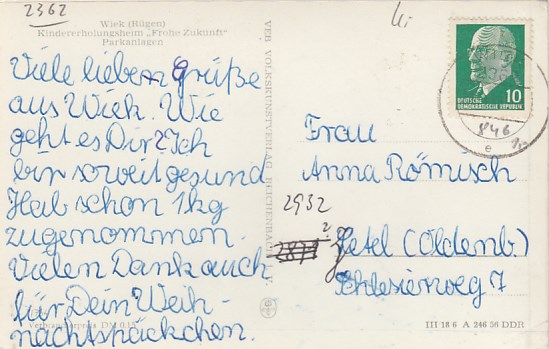 2362
Wiek (Rügen)
Kindererholungsheim „Frohe Zukunft“
Parkanlagen
Viele lieben Grüße
aus Wiek. Wie
geht es Dir? Ich
bin soweit gesund
Hab schon 1 kg
zugenommen.
Vielen Dank auch
für Dein Weih-
nachtspäckchen.
Verbraucherpreis DM 0,15
VEB VOLKSKUNSTVERLAG REICHENBACH I. V.
DEUTSCHE
DEMOKRATISCHE REPUBLIK
10
846
e
Frau
Anna Römisch
2932
?
Zetel (Oldenb.)
Schlesierweg 7
III 18 6 A 246 56 DDR